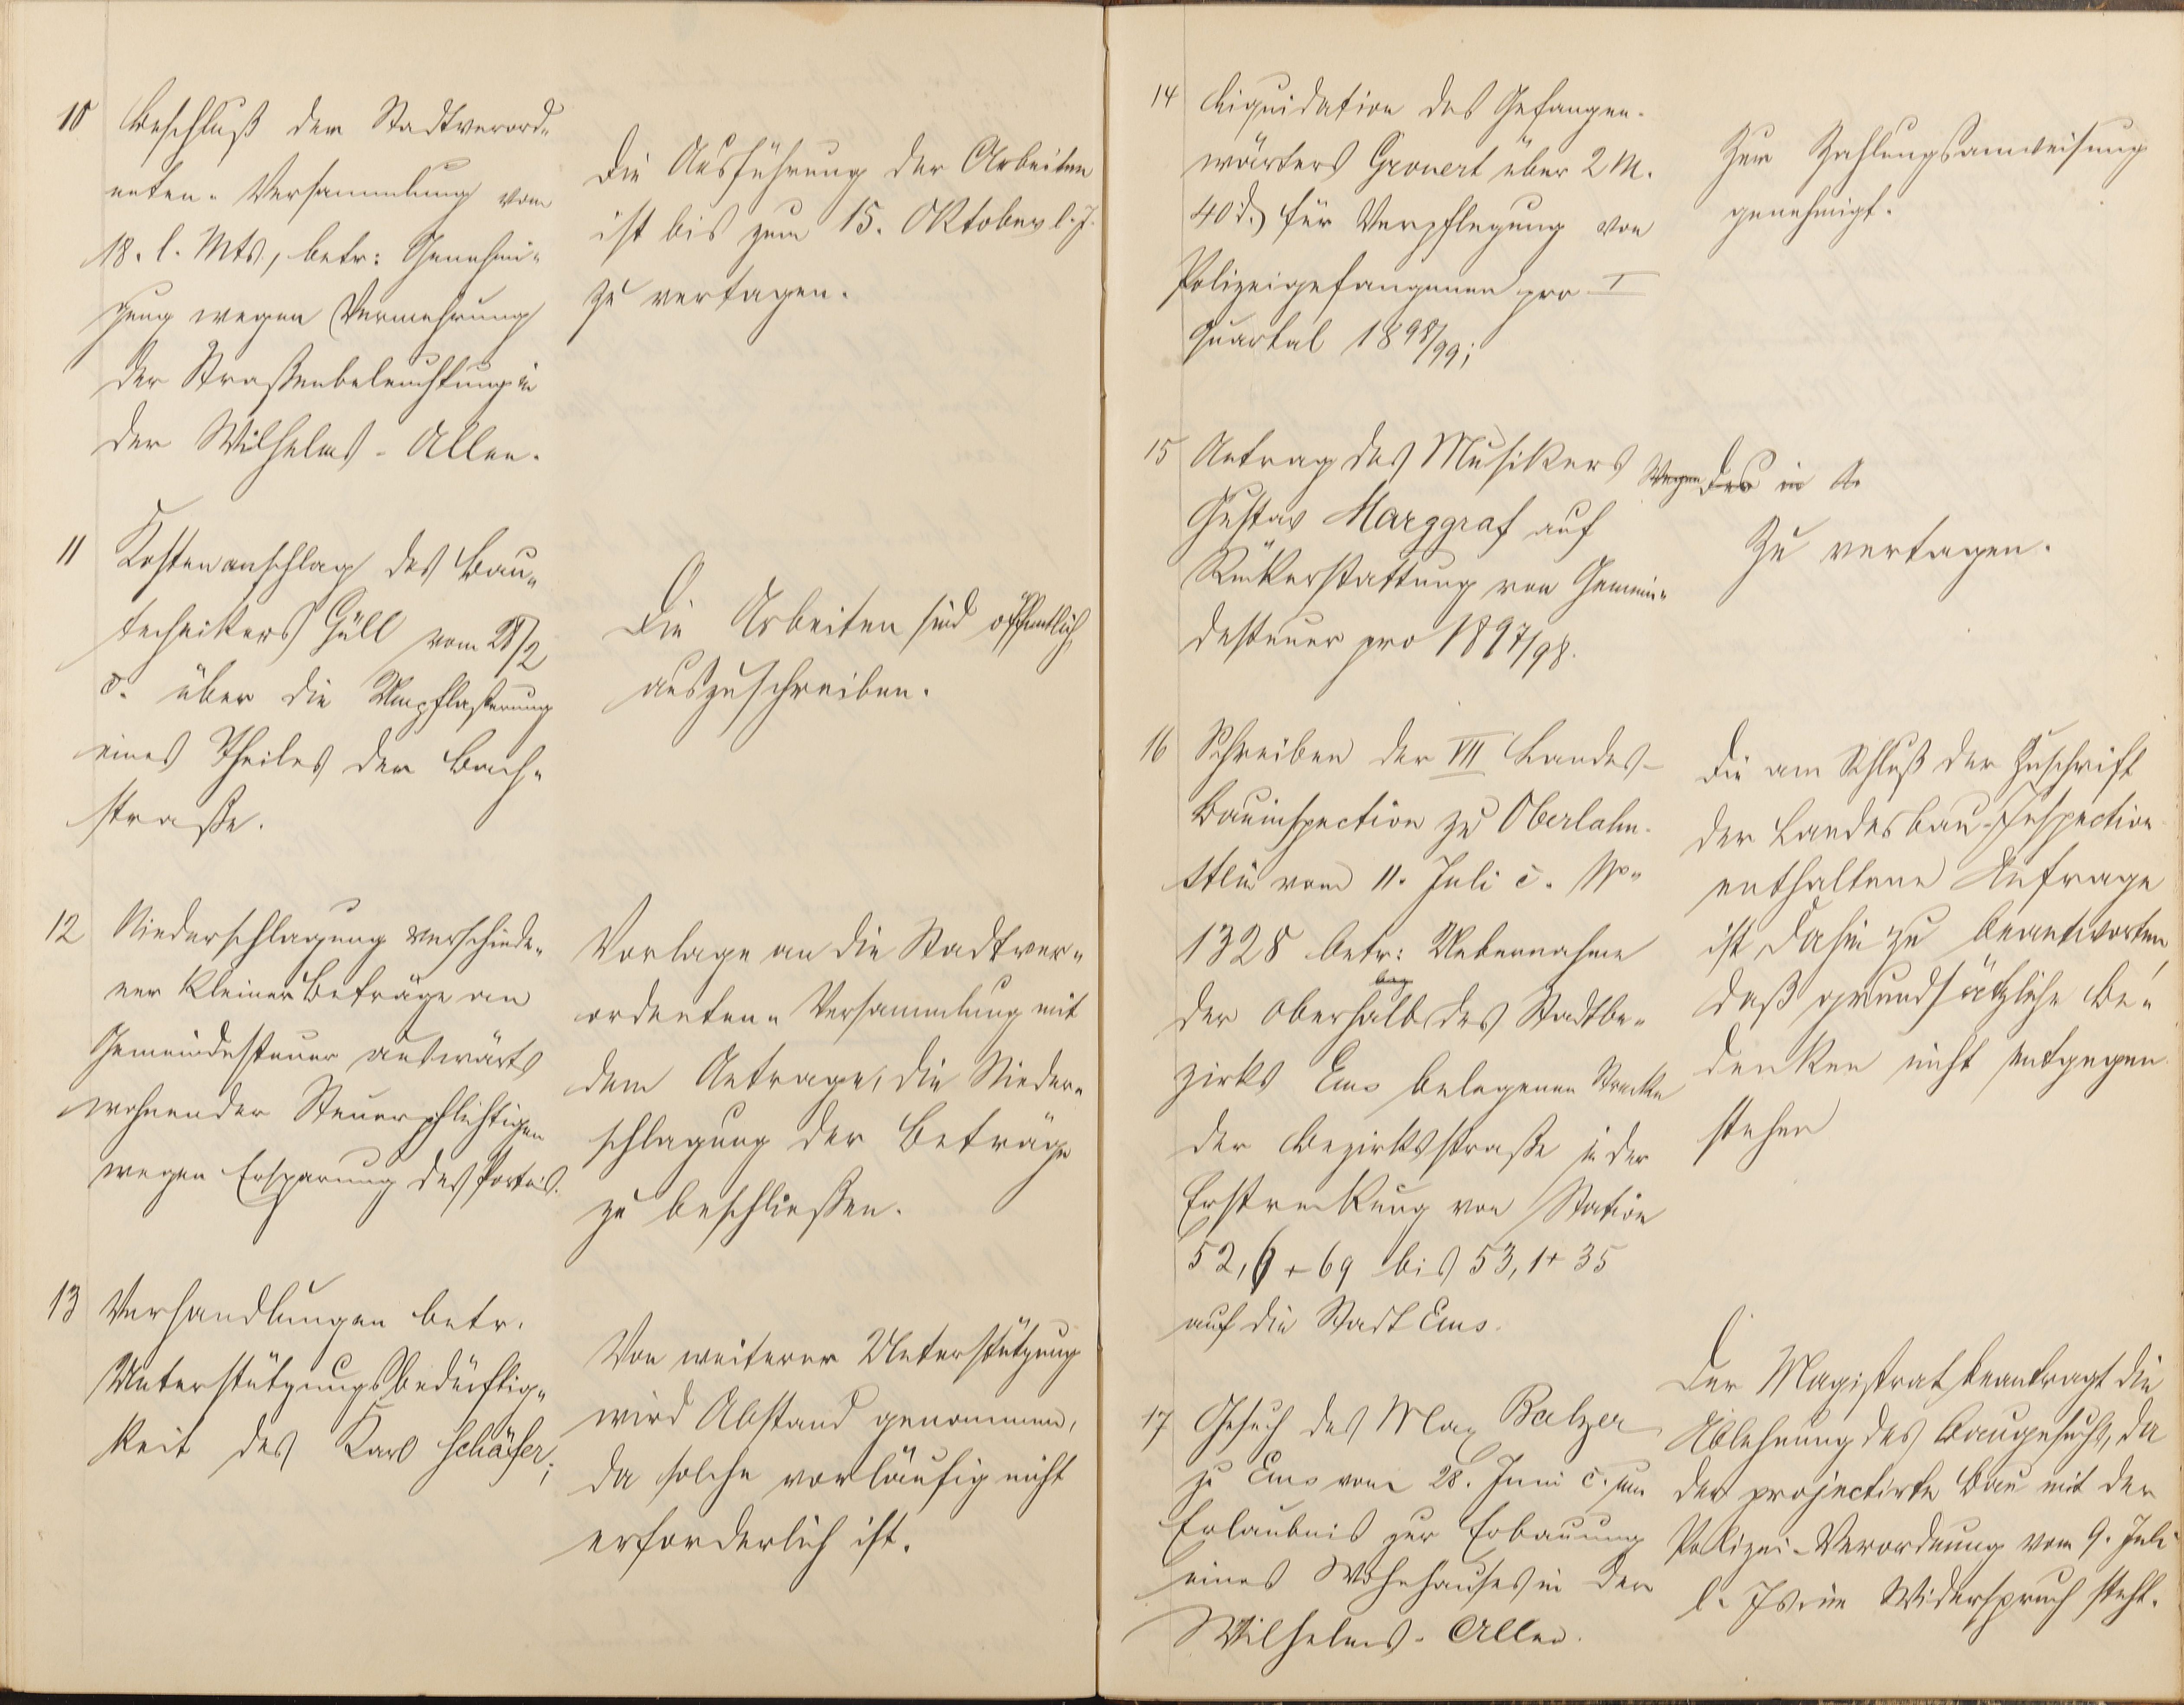 10 Beschluß der Stadtverord„
neten-Versammlung vom
18. l. Mts., betr: Genehmi„
gung wegen Vermehrung
der Straßenbeleuchtung in
der Wilhelms-Allee.
Die Ausführung der Arbeiten
ist bis zum 15. Oktober l. J.
zu vertagen.
11 Kostenanschlag des Bau„
technikers Güll vom 28/2
c. über die Umpflasterung
eines Theiles der Bach„
straße.
Die Arbeiten sind öffentlich
auszuschreiben.
12 Niederschlagung verschiede„
ner kleiner Beträge an
Gemeindesteuer auswärts
wohnender Steuerpflichtigen
wegen Ersparung des Portos.
Vorlage an die Stadtver„
ordneten-Versammlung mit
dem Antrage, die Nieder„
schlagung der Beträge
zu beschließen.
13 Verhandlungen betr.
Unterstützungsbedürftig„
keit des Karl Schäfer;
Von weiterer Unterstützung
wird Abstand genommen,
da solche vorläufig nicht
erforderlich ist.
14 Liquidation des Gefangen-
wärters Gronert über 2 M.
40 d. für Verpflegung von
Polizeigefangenen pro I
Quartal 1898/99;
Zur Zahlungsanweisung
genehmigt.
15 Antrag des Musikers
Gustav Marggraf auf
Rückerstattung von Gemein„
desteuer pro 1897/98.
Wegen des in A.
Zu vertagen.
16 Schreiben der VII Landes-
Bauinspection zu Oberlahn-
stein vom 11. Juli c. No
1328 betr: Uebernahme
der oberhalb des Stadtbe„
zirks Ems belegenen Strecke
der Bezirksstraße in der
Erstreckung von Station
52,6 + 69 bis 53,1 + 35
auf die Stadt Ems.
Die am Schluß der Zuschrift
der Landesbau-Inspection
enthaltene Anfrage
ist dahin zu beantworten,
daß grundsätzliche Be„
denken nicht entgegen
stehen
17 Gesuch des Max Balzer
zu Ems vom 28. Juni c. um
Erlaubnis zur Erbauung
eines Wohnhauses in der
Wilhelms-Allee.
Der Magistrat beantragt die
Ablehnung des Baugesuchs, da
der projectirte Bau mit der
Polizei-Verordnung vom 9. Juli
l. Js. im Widerspruch steht.